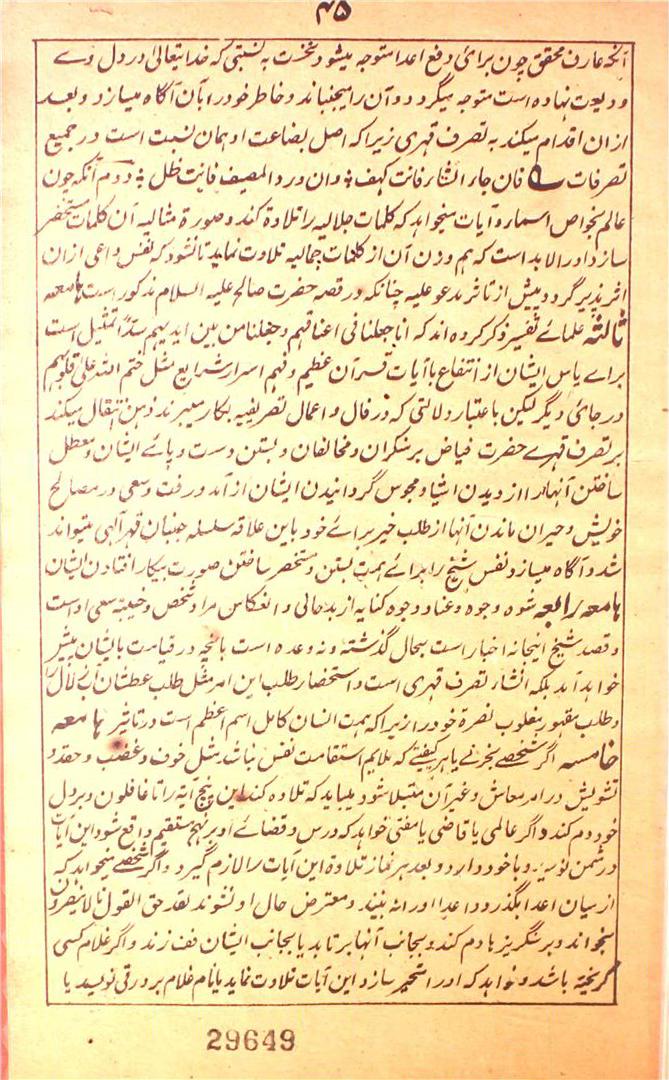 ۴۵
آنچه عارف محقق چون برای دفع اعدا متوجه میشود نخست به نسبتی که خدا یتعالی در دل وے
ودیعت نهاده است متوجه میگردد و آن را میجنباند و خاطر خود را بآن آگاه میسازد و بعد
ازان اقدام میکند به تصرف قهری زیرا که اصل بضاعت او همان نسبت است در جمیع
تصرفات فان جاء الشتاء فانت کهف وان ورد المصیف فانت ظل دوم آنکه چون
عالم بخواص اسماء و آیات میخواهد که کلمات جلالیه را تلاوة کند و صورة مثالیه آن کلمات مستحضر
سازد اورا لابد است که هم وزن آن از کلمات جمالیه تلاوت نماید تا نشود که نفس داعی ازان
اثر پذیر گردد بیش از تاثر مدعو علیه چنانکه در قصه حضرت صالح علیه السلام مذکور است هامعه
ثالثه علمائے تفسیر ذکر کرده اند که انا جعلنا فی اعناقهم و جعلنا من بین ایدیهم سدًا تمثیل است
براے یاس ایشان از انتفاع باآیات قرآن عظیم و فهم اسرار شرایع مثل ختم الله علی قلوبهم
در جائ دیگر لیکن باعتبار دلالتی که در فال و اعمال تصریفیه بکار میبرند ذهن انتقال میکند
بر تصرف قهرے حضرت فیاض بر منکران و مخالفان و بستن دست و پائے ایشان و معطل
ساختن آنها را از دیدن اشیا و محبوس گردانیدن ایشان از آمد و رفت و سعی در مصالح
خویش و حیران ماندن آنها از طلب خیر برائے خود باین علاقه سلسله جنبان قهر الهی میتواند
شد و آگاه میسازد نفس شیخ را برائے همت بستن و مستحضر ساختن صورت بیکار افتادن ایشان
هامعه رابعه شوه وجوه و عناد وجوه کنایه از بدحالی و انعکاس مراد شخص و خیبة سعی اوست
و قصد شیخ اینجا نه اخبار است بحال گذشته و نه وعده است بانچه در قیامت با ایشان پیش
خواهد آمد بلکه انشاء تصرف قهری است و استحضار طلب این امر مثل طلب عطشان آب زلال را
و طلب مقهور مغلوب نصرة خود را زیرا که همت انسان کامل اسم اعظم است در تاثیر هامعه
خامسه اگر شخصے بحزنے یا هر کیفیتے که ملایم استقامت نفس نباشد مثل خوف و غضب و حقد و
تشویش در امر معاش و غیر آن مبتلا شود میباید که تلاوه کند این پنج آیة را تا غافلون و بر دل
خود دم کند و اگر عالمی یا قاضی یا مفتی خواهد که درس و قضائے او بر نهج مستقیم واقع شود این آیات
در ثمن نویسد و با خود دارد و بعد هر نماز تلاوة این آیات را لازم گیرد و اگر شخصے میخواهد که
از میان اعدا بگذرد و اعدا او را نه بینند و معترض حال او نشوند لقد حق القول تا لا یبصرون
بخواند و بر سنگریزها دم کند و بجانب آنها برتابد یا بجانب ایشان فف زند و اگر غلام کسی
گریخته باشد و خواهد که او را متحیر سازد این آیات تلاوت نماید یا نام غلام بر ورقی نویسد یا
29649